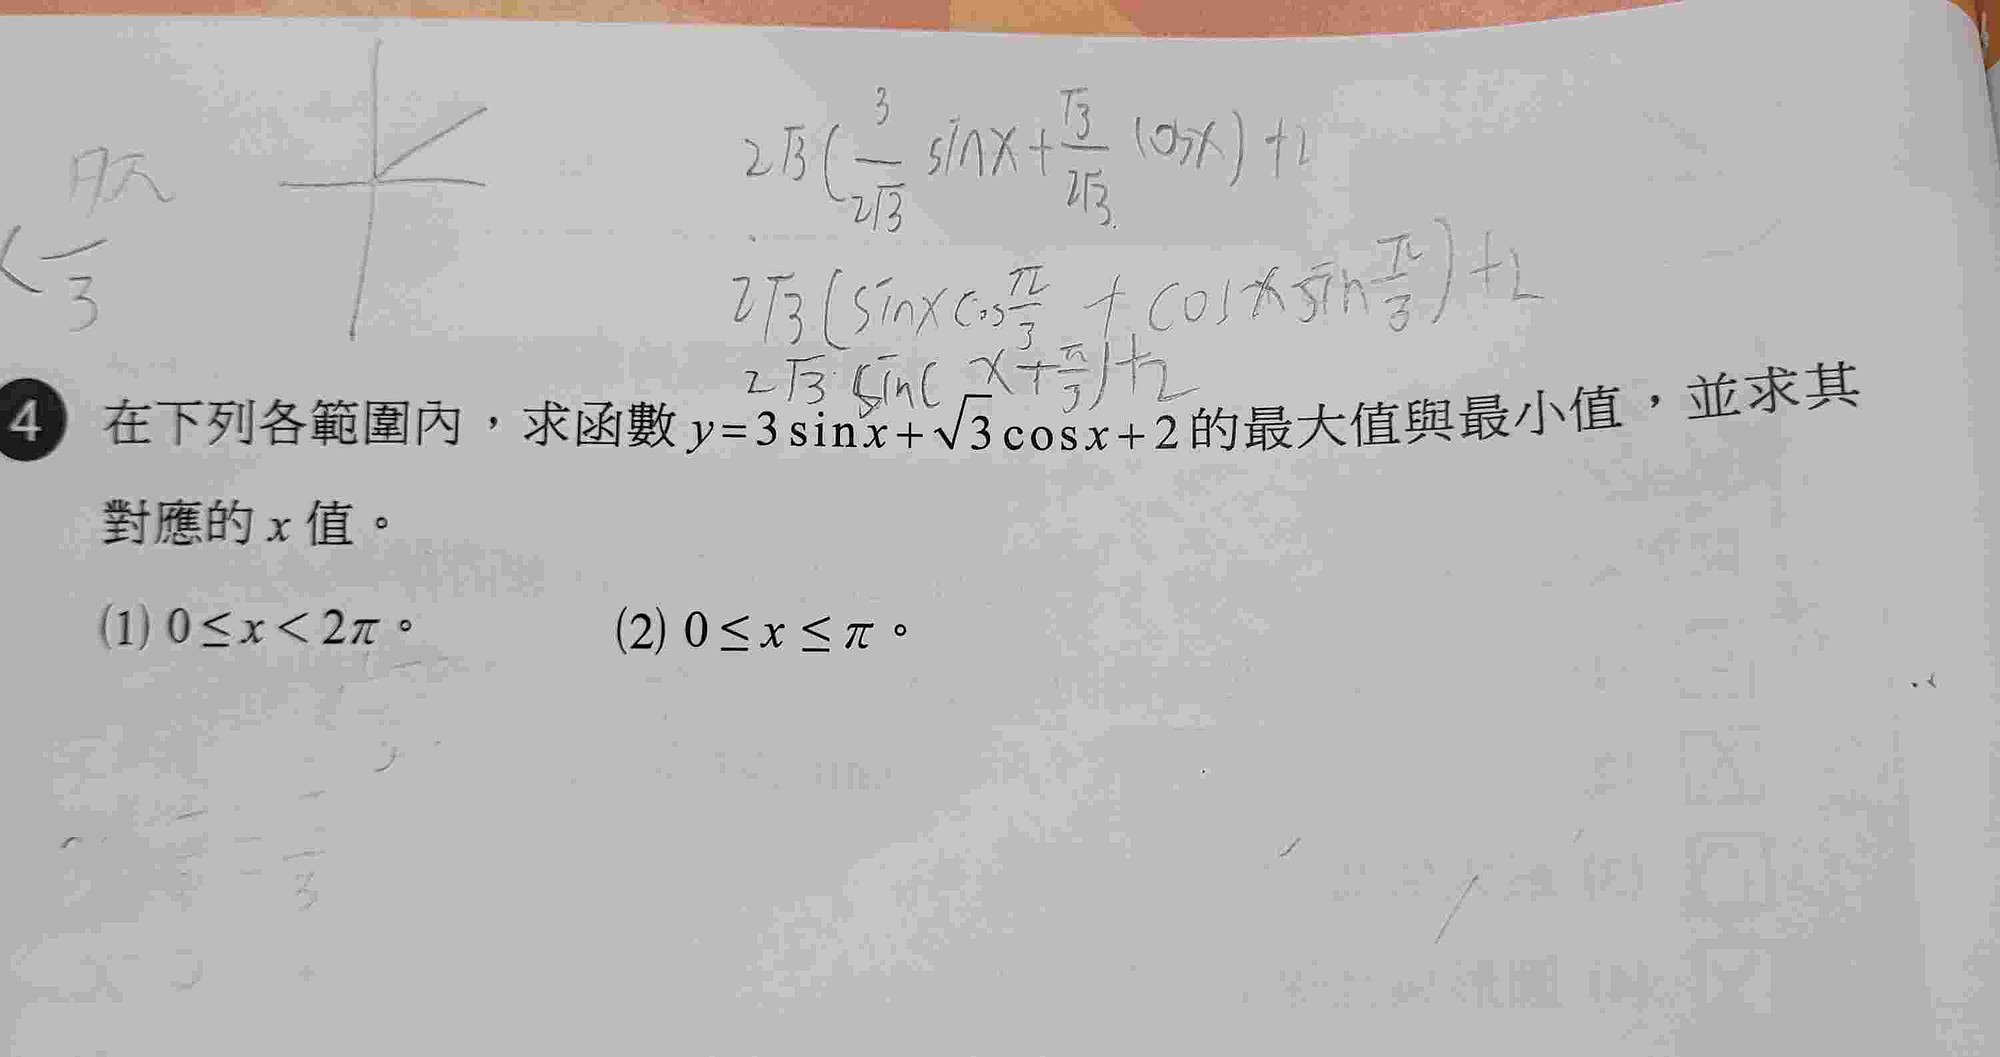 2√3(3/2√3 sinx+√3/2√3 cosx)+2
2√3(sinx cosπ/3 + cosx sinπ/3)+2
2√3 sin(x+π/3)+2
4 在下列各範圍內，求函數 y=3sinx+√3cosx+2的最大值與最小值，並求其
對應的 x 值。
(1) 0≤x<2π。 (2) 0≤x≤π。